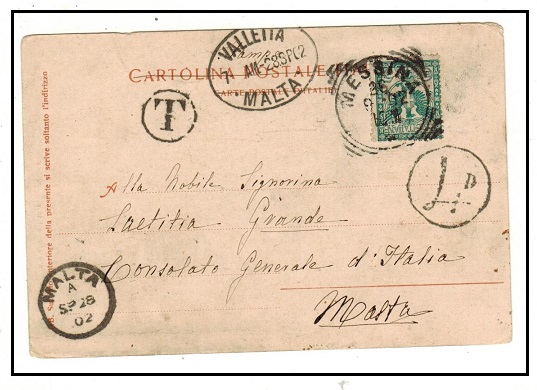 VALLETTA
7 AM-28SP02
MALTA
CARTOLINA POSTALE
CARTE POSTALE D'ITALIE
MESSINA
T
1 D
Alla Nobile Signorina
Laetitia Grande
Consolato Generale d'Italia
Malta
MALTA
A
SP 28
02
della presente si scrive soltanto l'indirizzo